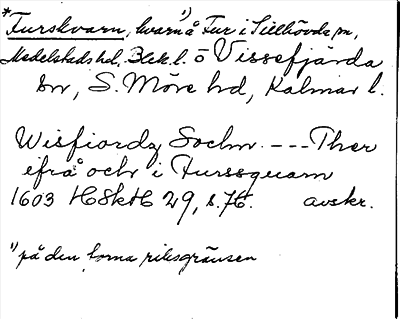 *Furskvarn, kvarn¹) å Fur i Tillhövda sn,
Medelstads hd, Blek. l. o Vissefjärda
sn, S. Möre hd, Kalmar l.
Wisfiordz Sochn. --- Ther
ifrå och i Furssquarn
1603 HSkH 29, s. 76. avskr.
¹) på den forna riksgränsen